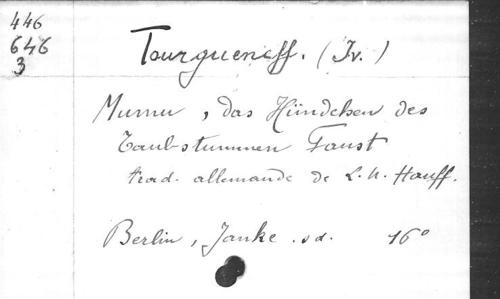 446
646
3
Tourgueneff. (Iv.)
Mumu, das Hündchen des
Taubstummen Faust
trad. allemande de L. H. Hauff.
Berlin, Janke. sd. 16°